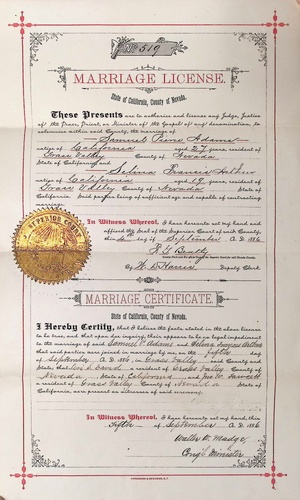 No. 519
MARRIAGE LICENSE.
State of California, County of Nevada.
These Presents are to authorize and license any Judge, Justice
of the Peace, Priest, or Minister of the Gospel of any denomination, to
solemnize within said County, the marriage of
Samuel Adams
native of California aged 27 years, resident of
Grass Valley County of Nevada
State of California, and
Selina Francis
native of California aged 19 years, resident of
Grass Valley County of Nevada State of
California, said parties being of sufficient age and capable of contracting
marriage.
In Witness Whereof, I have hereunto set my hand and
affixed the Seal of the Superior Court of said County,
this day of September A. D. 1886
Beatty
By Deputy Clerk.
SUPERIOR COURT
MARRIAGE CERTIFICATE.
State of California, County of Nevada.
I Hereby Certify, that I believe the facts stated in the above license
to be true, and that upon due inquiry, there appears to be no legal impediment
to the marriage of said Samuel P. Adams and Selina Francis
that said parties were joined in marriage by me, on the fifth day
of September A. D. 1886, in Grass Valley County and
State; that a resident of Grass Valley County of
Nevada State of California and
a resident of Grass Valley County of Nevada State of
California, are present as witnesses of said ceremony.
In Witness Whereof, I have hereunto set my hand, this
fifth day of September A. D. 1886
Walter
Minister